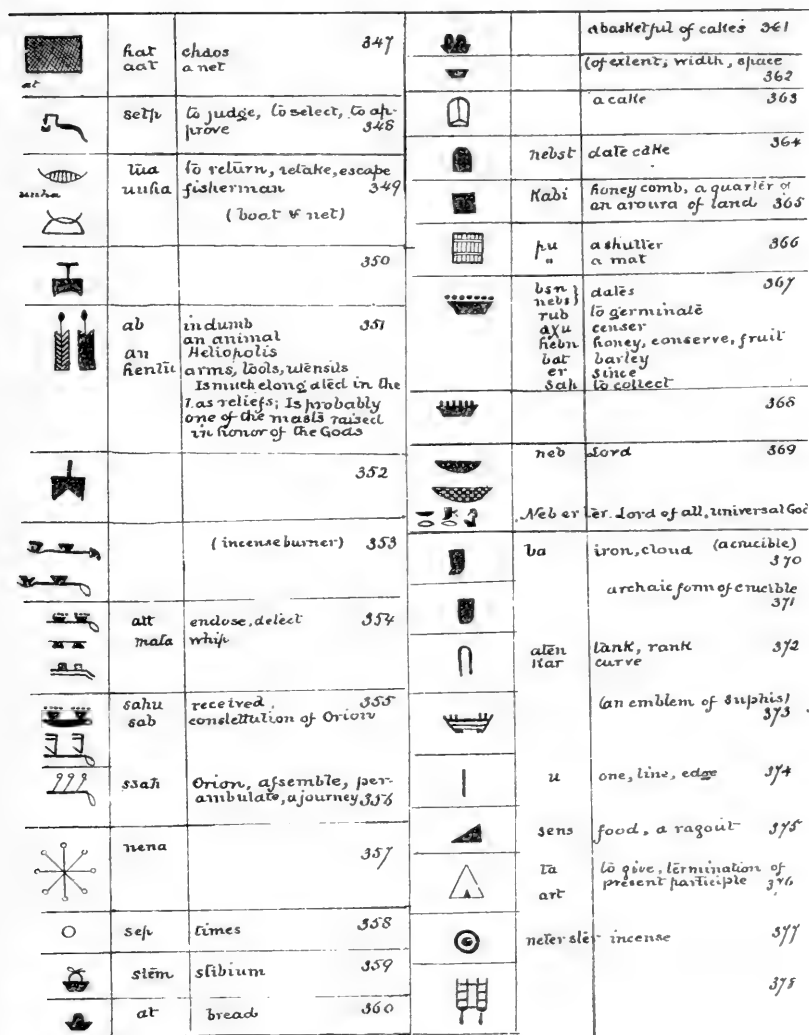 hat chaos 347
aat a net
at
setp to judge, to select, to ap-
prove 348
tua to return, retake, escape
unha unha fisherman 349
(boat & net)
350
ab indumb 351
an animal
an Heliopolis
hentu arms, tools, utensils
Is much elongated in the
T. as reliefs; Is probably
one of the masts raised
in honor of the Gods
352
(incense burner) 353
att enclose, detect 354
mata whip
sahu received. 355
sab constettution of Orion
ssah Orion, assemble, per-
ambulate, a journey 356
nena 357
sep times 358
stem stibium 359
at bread 360
a basketful of cakes 361
(of extent; width, space
362
a cake 363
nebst date cake 364
Kabi honey comb, a quarter of
an aroura of land 365
pu a shutter 366
" a mat
bsn } dates 367
nebs }
rub to germinate
axu censer
hebn honey, conserve, fruit
bat barley
er since
sah to collect
368
neb Lord 369
Neb er ter. Lord of all, universal God
ba iron, cloud (a crucible)
370
archaic form of crucible
371
aten tank, rank 372
Kar curve
(an emblem of Suphis)
373
u one, line, edge 374
sens food, a ragout 375
ta to give, termination of
art present participle 376
neter ster incense 377
378